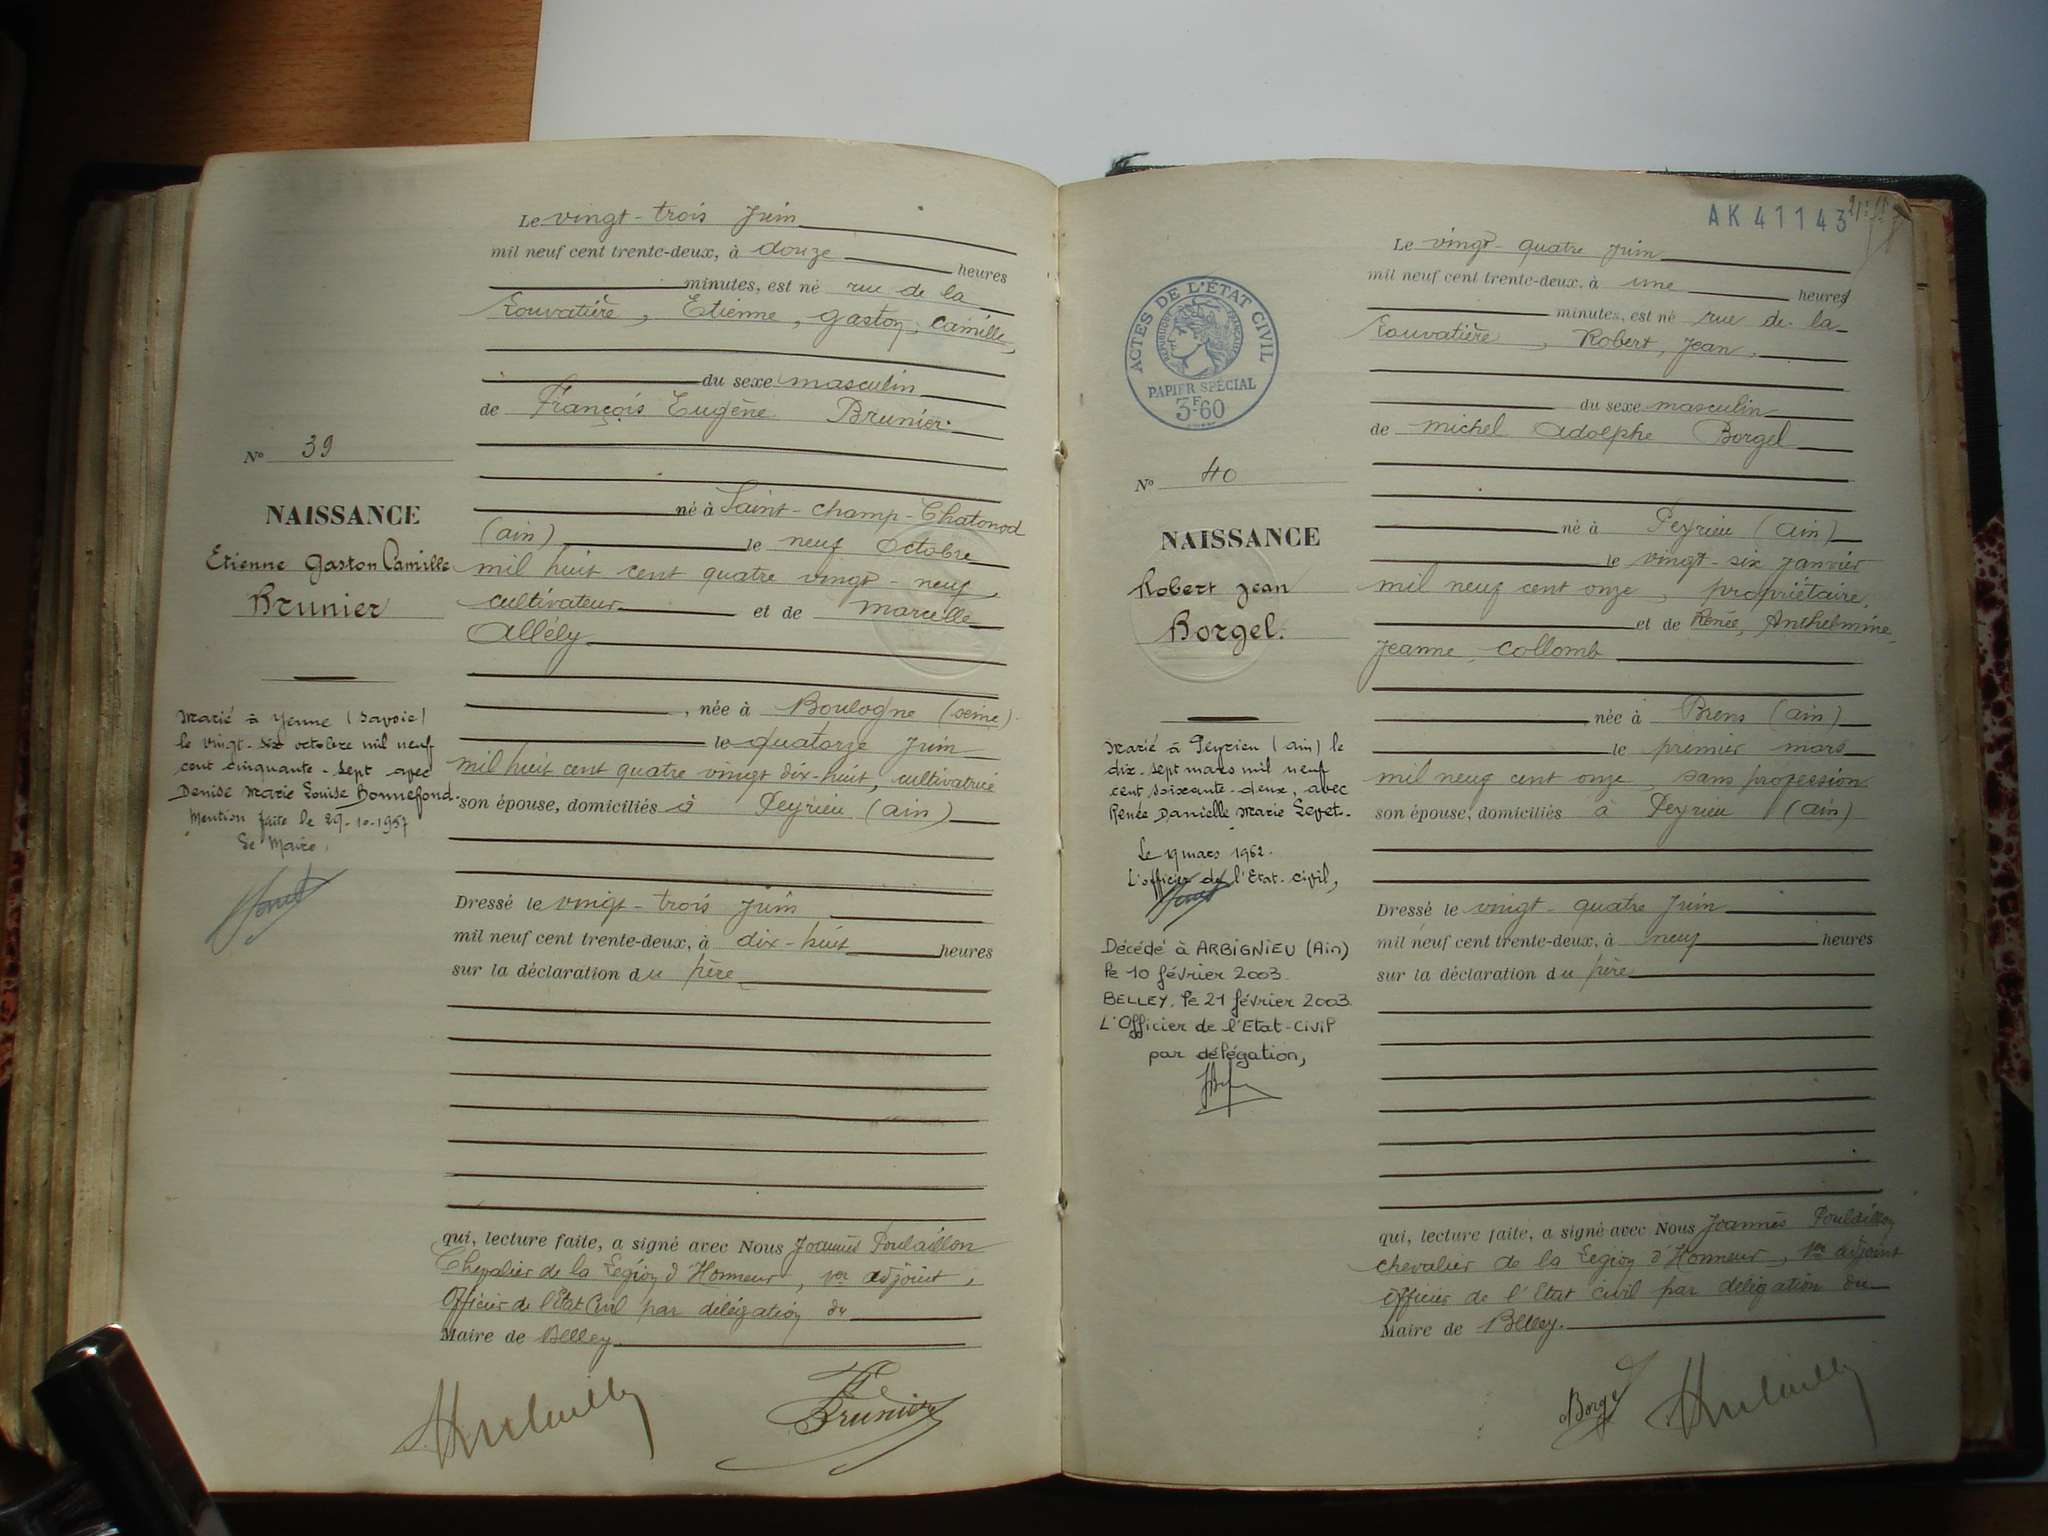 Le vingt-trois Juin
mil neuf cent trente-deux, à douze heures
minutes, est né rue de la
Rouvatière, Etienne, Gaston, Camille,
du sexe masculin
de François Eugène Brunier
né à Saint-Champ-Chatonod
(ain) le neuf Octobre
mil huit cent quatre vingt-neuf,
cultivateur et de Marcelle
Allély
, née à Boulogne (seine)
le quatorze Juin
mil huit cent quatre vingt dix-huit, cultivatrice
son épouse, domiciliés à Peyrieu (ain)
Dressé le vingt-trois Juin
mil neuf cent trente-deux, à dix-huit heures
sur la déclaration du père
qui, lecture faite, a signé avec Nous Joannès Poulaillon
Chevalier de la Légion d'Honneur, 1er adjoint,
Officier de l'Etat Civil par délégation du
Maire de Belley.
Brunier
No 39
NAISSANCE
Etienne Gaston Camille
Brunier
Marié à Yenne (Savoie)
le vingt-six octobre mil neuf
cent cinquante-sept avec
Denise Marie Louise Bonnefond.
Mention faite le 29-10-1957
Le Maire,
AK 41143
ACTES DE L'ÉTAT CIVIL
RÉPUBLIQUE FRANÇAISE
PAPIER SPÉCIAL
3F60
No 40
NAISSANCE
Robert Jean
Borgel.
Marié à Peyrieu (ain) le
dix-sept mars mil neuf
cent soixante-deux, avec
Renée Danielle Marie Levet.
Le 19 mars 1962.
L'officier de l'Etat-civil,
Décédé à ARBIGNIEU (Ain)
le 10 février 2003.
BELLEY, le 21 février 2003
L'Officier de l'Etat-Civil
par délégation,
Le vingt-quatre Juin
mil neuf cent trente-deux, à une heures
minutes, est né rue de la
Rouvatière, Robert, Jean,
du sexe masculin
de Michel Adolphe Borgel
né à Peyrieu (ain)
le vingt-six Janvier
mil neuf cent onze, propriétaire,
et de Renée, Anthelmine,
Jeanne, Collomb
née à Brens (ain)
le premier mars
mil neuf cent onze, sans profession
son épouse, domiciliés à Peyrieu (ain)
Dressé le vingt-quatre Juin
mil neuf cent trente-deux, à neuf heures
sur la déclaration du père
qui, lecture faite, a signé avec Nous Joannès Poulaillon
chevalier de la Légion d'Honneur, 1er adjoint
officier de l'Etat Civil par délégation du
Maire de Belley.
Borgel